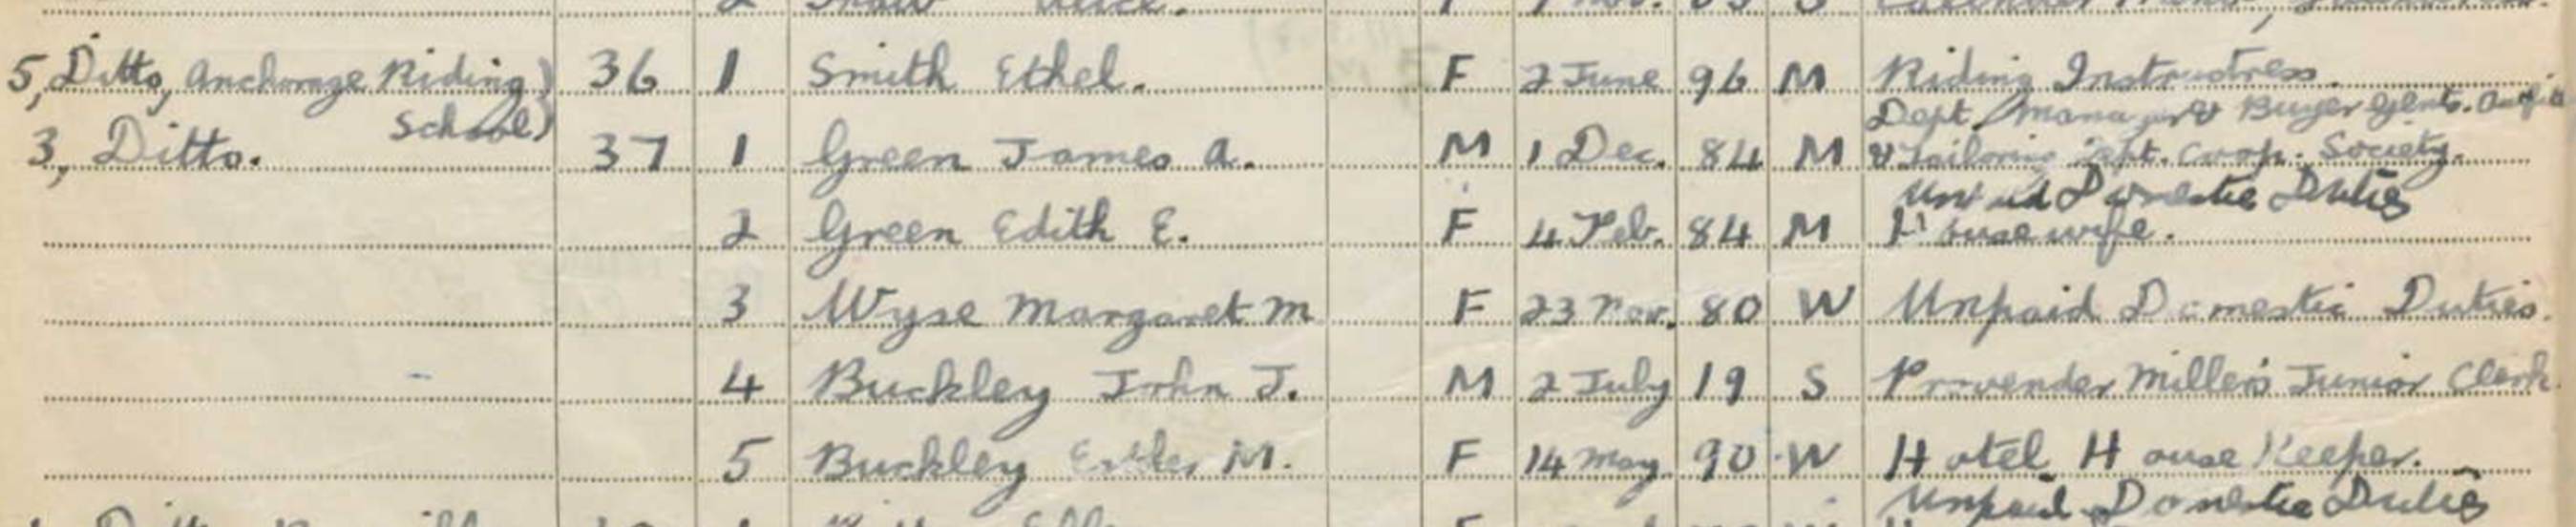 5, Ditto, Anchorage Riding School) 36 1 Smith Ethel. F 2 June 96 M Riding Instructress.
3, Ditto. 37 1 Green James A. M 1 Dec. 84 M Dept. Manager & Buyer Gents.
& Tailoring Dept. Coop. Society.
Unpaid Domestic Duties
2 Green Edith E. F 4 Feb. 84 M Housewife.
3 Wyse Margaret M F 23 Nov. 80 W Unpaid Domestic Duties.
4 Buckley John J. M 2 July 19 S Provender Millers Junior Clerk.
5 Buckley Esther M. F 14 May 90 W Hotel House Keeper.
Unpaid Domestic Duties